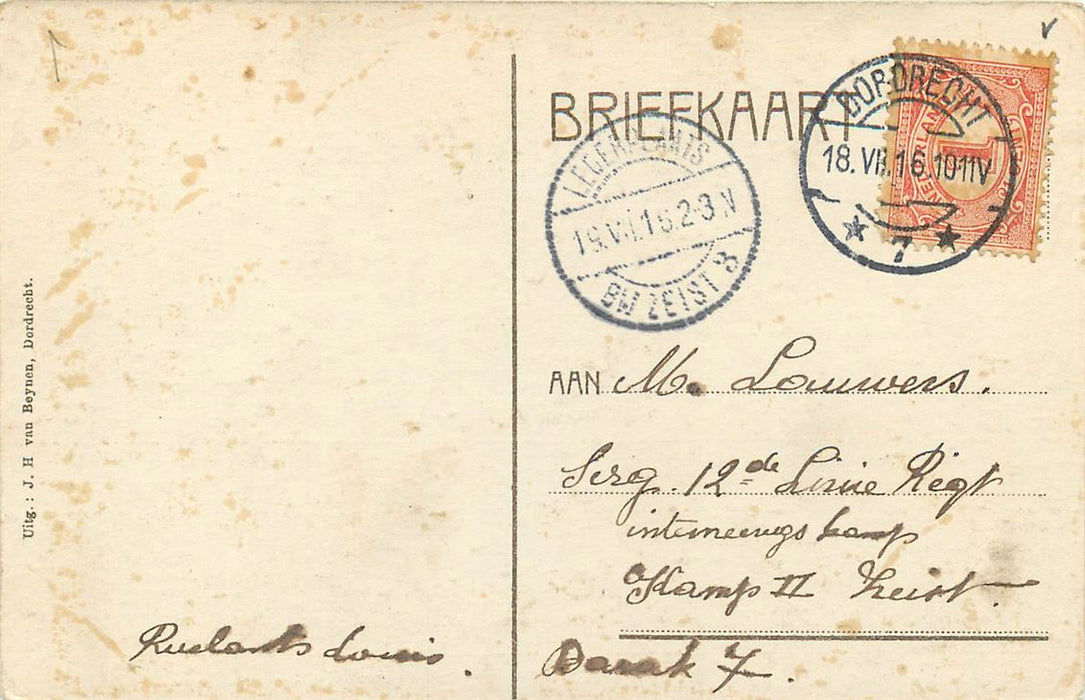 BRIEFKAART
DORDRECHT
18.VII.16.10-11V
7
NEDERLAND
1
LEGERPLAATS
19.VII.16.2-3.N
BIJ ZEIST 3
AAN M. Lauwers.
Serg. 12de Linie Regt
interneerings kamp
Kamp II Zeist.
Barak 7.
Ruelants Louis.
Uitg. : J. H van Beynen, Dordrecht.